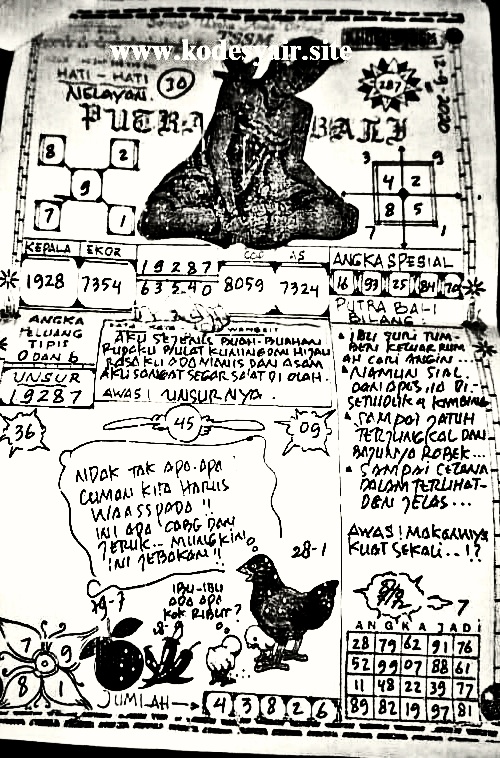 www.kodesyair.site
HATI - HATI
NELAYAN.
30
PUTRA BALI
287
12-9-2020
8 2
9
7 1
3 9
4 2
8 5
7 1
KEPALA EKOR
1928 7354
19287
63540
COP AS
8059 7324
ANGKA SPESIAL
16 93 25 84 70
ANGKA
PELUANG
TIPIS
0 DAN 6
UNSUR
19287
AKU SEJENIS BUAH-BUAHAN
RUPAKU BULAT KUNING DAN HIJAU
RASA KU ADA MANIS DAN ASAM
AKU SANGAT SEGAR SAAT DI OLAH.
AWAS! UNSURNYA.
PUTRA BALI
BILANG:
IBU GURU TUM
BEN KELUAR RUM
AH CARI ANGIN...
NAMUN SIAL
DAN APES, IA DI-
SERUDUK KAMBING
SAMPAI JATUH
TERJUNGKAL DAN
BAJUNYA ROBEK...
SAMPAI CELANA
DALAM TERLIHAT-
DEN JELAS...
AWAS! MAKANNYA
KUAT SEKALI..!?
36
45
09
NDAK TAK APA-APA
CUMAN KITA HARUS
WAASSPADA!!
INI ADA CABE DAN
JERUK.. MUNGKIN
INI JEBAKAN!!
28-1
29-7
IBU-IBU
ADA APA
KOK RIBUT?
8-9
7 9
8 1
JUMLAH → 4 3 8 2 6
7
ANGKA JADI
28 79 62 91 76
52 99 07 88 61
11 48 22 39 77
89 82 19 97 81